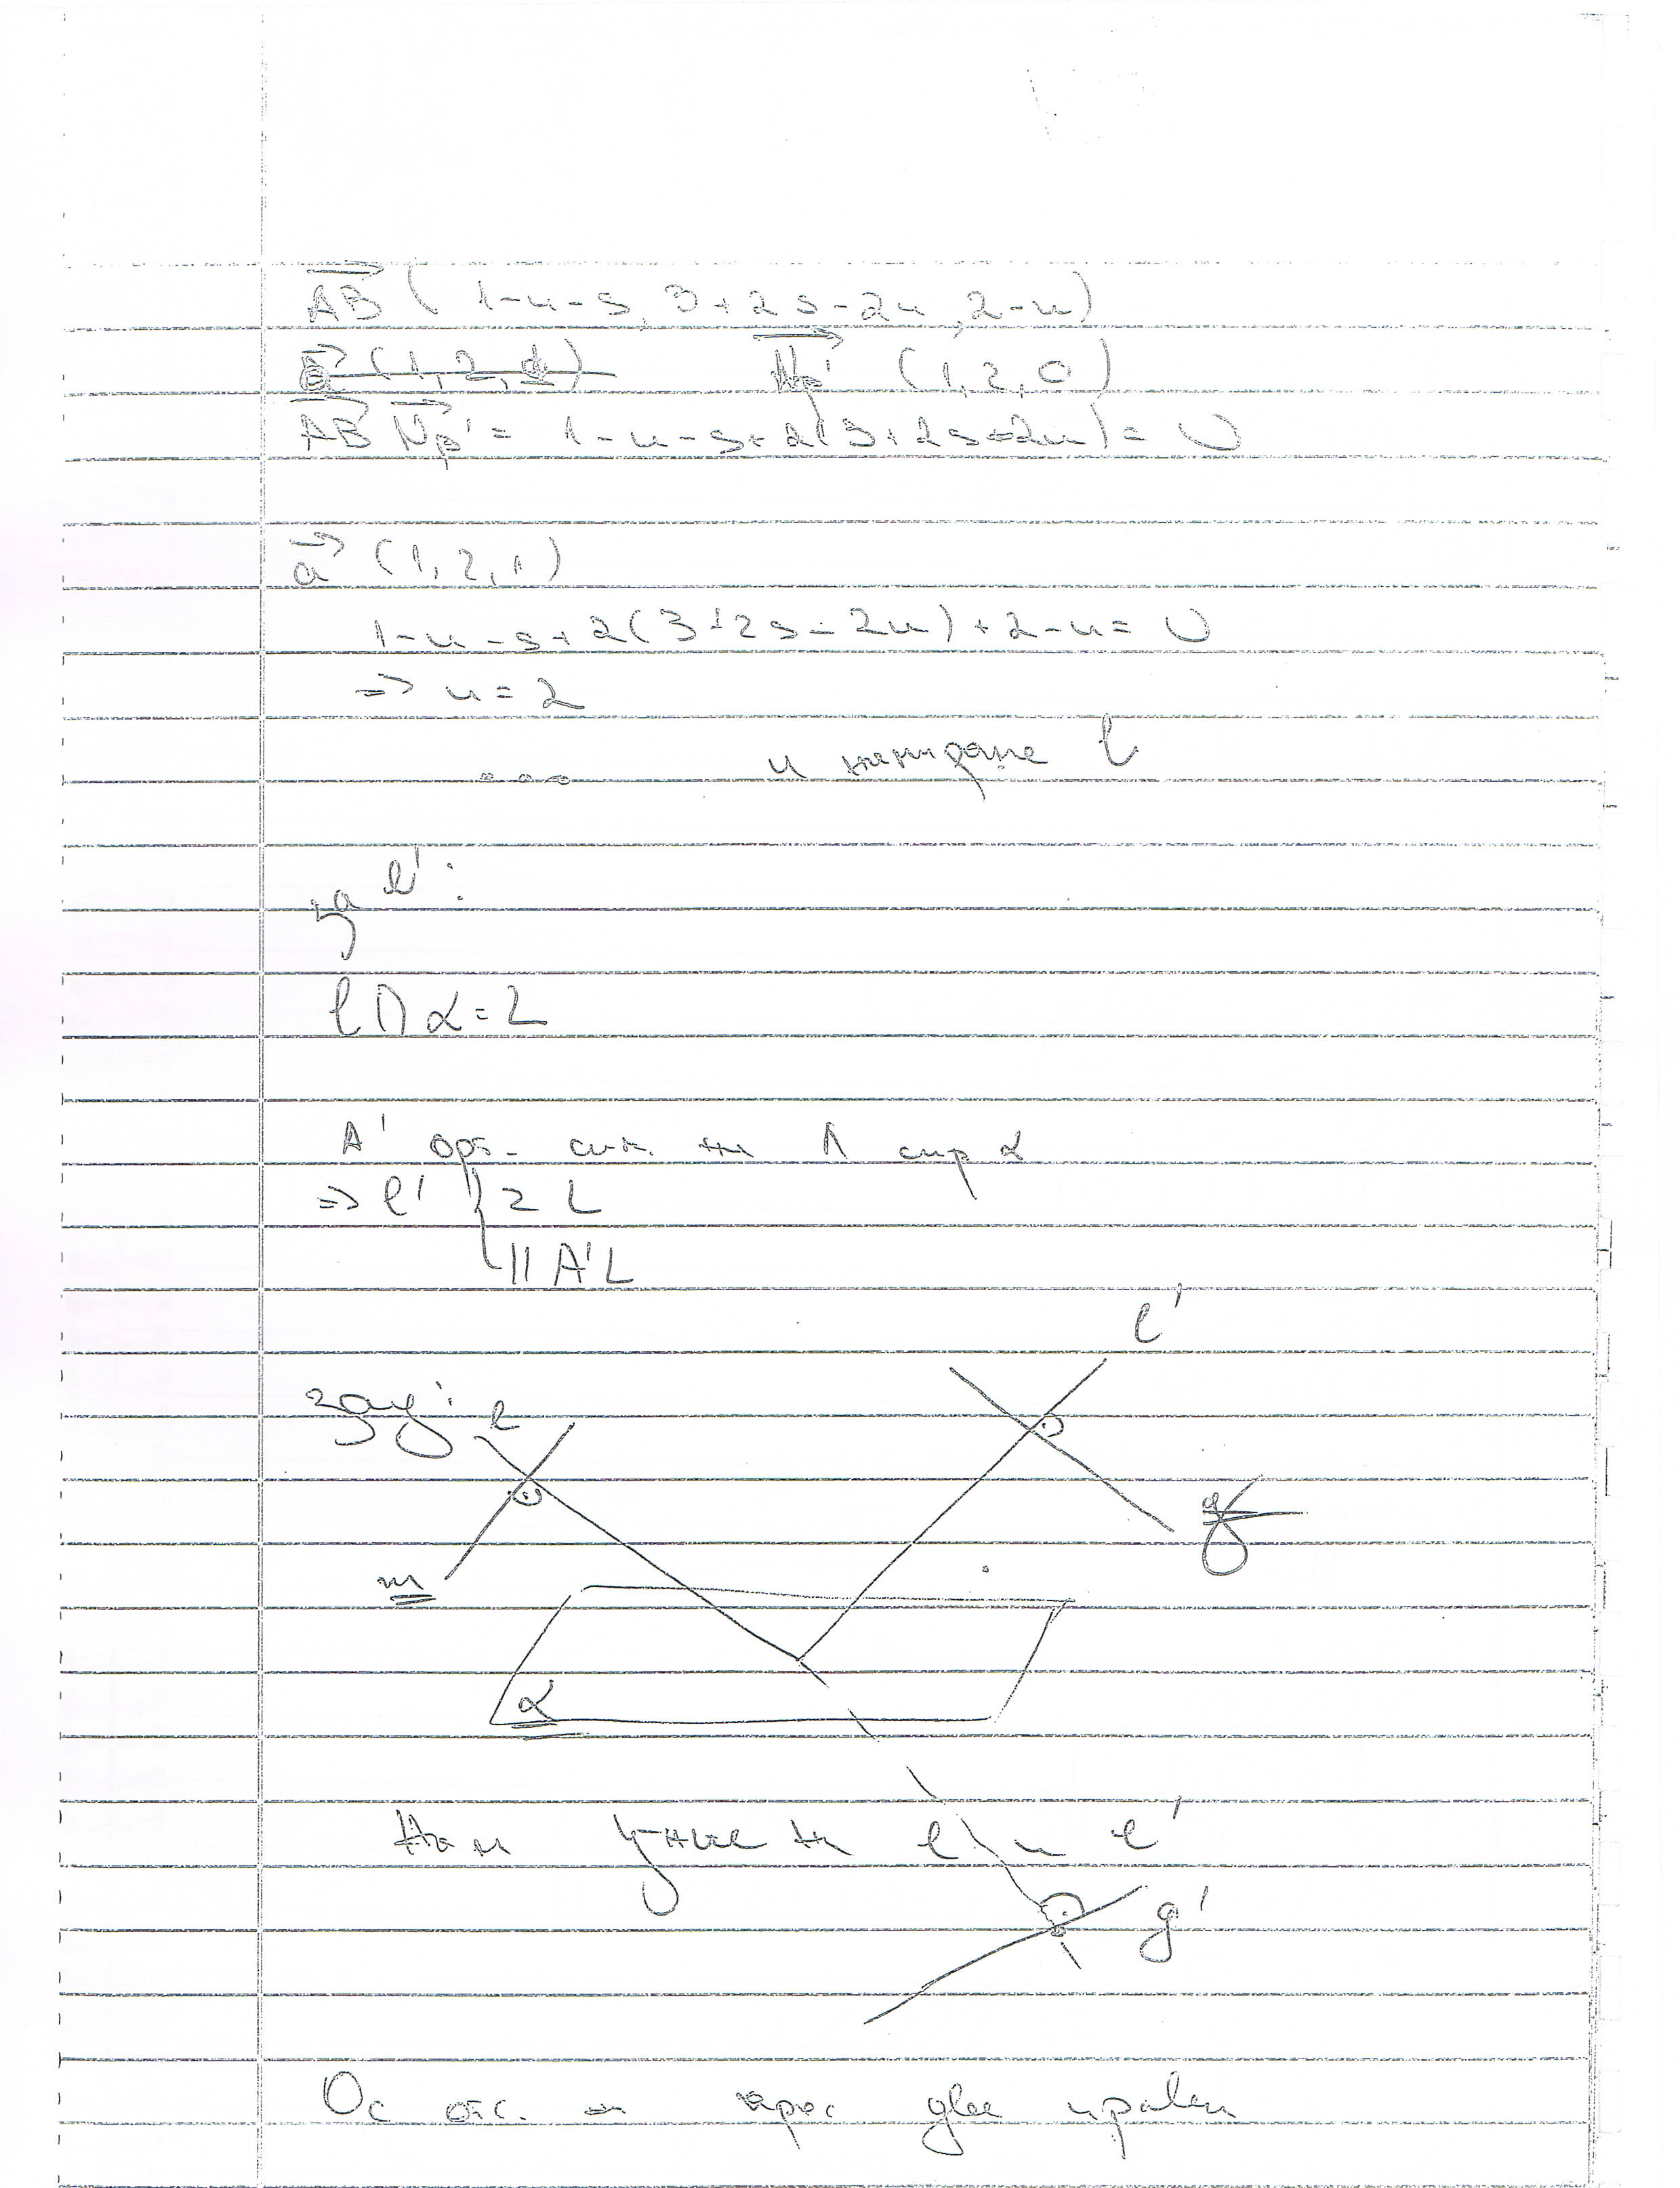 AB→ ( 1-u-s, 3+2s-2u, 2-u)
a→ (1,2,1) Nβ'→ (1,2,0)
AB→ Nβ'→ = 1-u-s+2(3+2s-2u) = 0
a→ (1,2,1)
1-u-s+2(3+2s-2u)+2-u=0
=> u=2
... и намираме l
за l':
l ∩ α = L
A' орт. сим. на A спр α
=> l' { ∋ L
|| A'L
l'
зад: l
g
m
α
Нам у-ние на l и l'
g'
Ос отс. на крос две прави